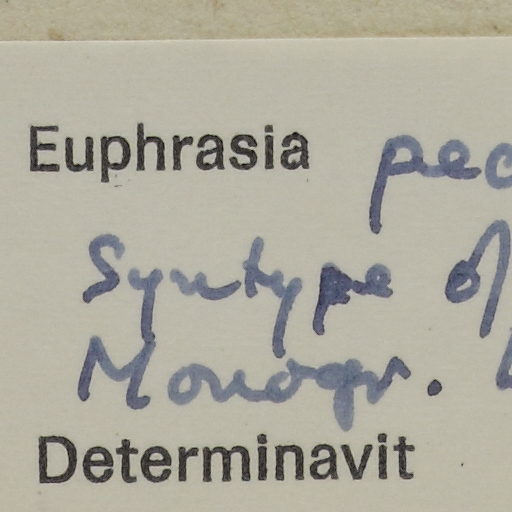 Euphrasia pec
Syntype of
Monogr.
Determinavit